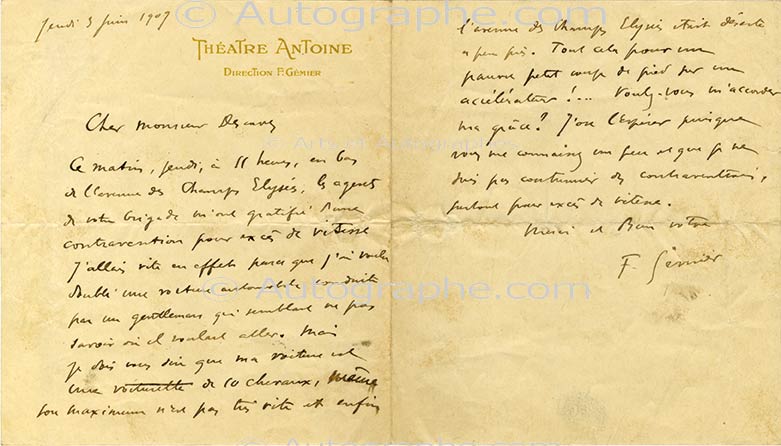 © Autographe.com
Jeudi 3 juin 1907
THÉATRE ANTOINE
DIRECTION F. GÉMIER
Cher Monsieur Descaves
Ce matin, jeudi, à 11 heures, en bas
de l'avenue des Champs Elysés, les agents
de votre brigade m'ont gratifié d'une
contravention pour excès de vitesse
J'allais vite en effet parce que j'ai voulu
doubler une voiture automobile conduite
par un gentleman qui semblait ne pas
savoir où il voulait aller. Mais
je dois vous dire que ma voiture est
une voiturette de 10 chevaux, même
son maximum n'est pas très vite et enfin
l'avenue des Champs Elysés était déserte
à peu près. Tout cela pour un
pauvre petit coup de pied sur un
accélérateur !... Voulez-vous m'accorder
ma grâce? J'ose l'espérer puisque
vous me connaissez un peu et que je ne
suis pas coutumier des contraventions,
surtout pour excès de vitesse.
Merci et bien votre
F. Gémier
© Arts et Autographes
© Autographe.com
© Autographe.com